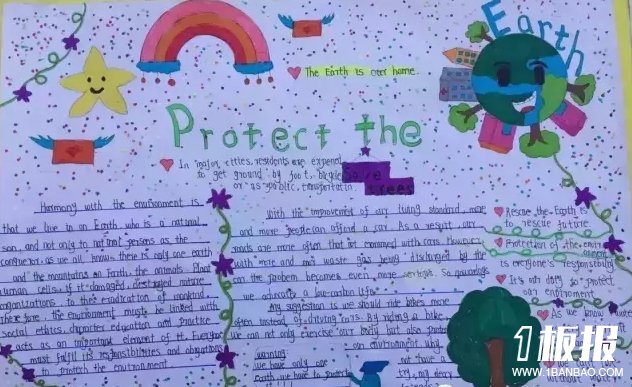 Earth
The Earth is our home.
Protect the
In major cities, residents are
to get ground by foot, bicycle
or as public transportation
Save
trees
Harmony with the environment is
that we live in an Earth who is a natural
son, and not only to not just persons as the
conqueror, as we all know, there is only one earth
and the mountains on Earth, the animals. Plant
human cells. if it damaged, destroyed nature
organizations, to the eradication of mankind.
There fore, the environment must be linked with
social ethics, character education and practice
acts as an important element of it. Everyone
must fulfil its responsibilities and obligations
to protect the environment.
With the improvement of our living standard, more
and more people can afford a car. As a result, our
roads are more often that not crammed with cars. However,
with more and more waste gas being discharged by the
the problem becomes even more serious. So nowadays
we advocate a low-carbon life.
My suggestion is we should ride bikes more
often instead of driving cars. By riding a bike
we can not only exercise our body but also protect
our environment. why
not have a
try, my dear
warning
we have only one
earth, we have to protect
Rescue the Earth is
to rescue future
Protection of the environment
is everyone's responsibility
It's our duty to protect
our environment
As we know
water
without
1板报
WWW.1BANBAO.COM